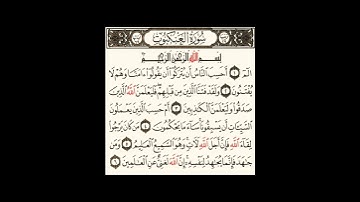 سورة العنكبوت
بسم الله الرحمن الرحيم
الٓمٓ ١ أَحَسِبَ النَّاسُ أَن يُتْرَكُوا أَن يَقُولُوا ءَامَنَّا وَهُمْ لَا
يُفْتَنُونَ ٢ وَلَقَدْ فَتَنَّا الَّذِينَ مِن قَبْلِهِمْ فَلَيَعْلَمَنَّ اللَّهُ الَّذِينَ
صَدَقُوا وَلَيَعْلَمَنَّ الْكَاذِبِينَ ٣ أَمْ حَسِبَ الَّذِينَ يَعْمَلُونَ
السَّيِّئَاتِ أَن يَسْبِقُونَا سَاءَ مَا يَحْكُمُونَ ٤ مَن كَانَ يَرْجُوا
لِقَاءَ اللَّهِ فَإِنَّ أَجَلَ اللَّهِ لَآتٍ وَهُوَ السَّمِيعُ الْعَلِيمُ ٥ وَمَن
جَاهَدَ فَإِنَّمَا يُجَاهِدُ لِنَفْسِهِ إِنَّ اللَّهَ لَغَنِيٌّ عَنِ الْعَالَمِينَ ٦